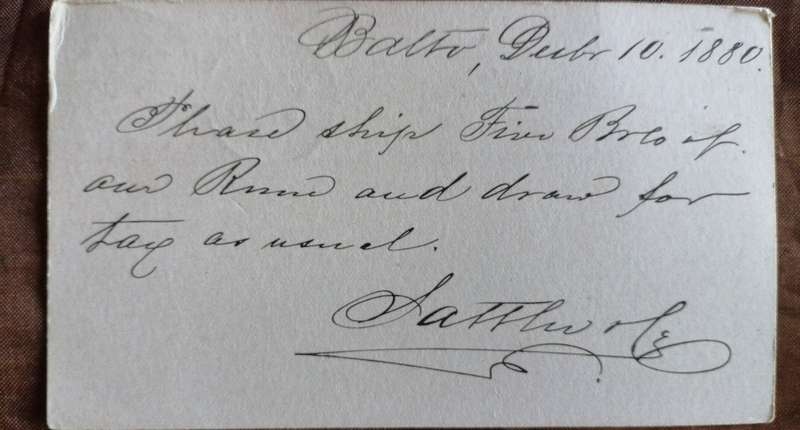 Balto, Decbr 10. 1880.
Please ship Five Brls of
our Rum and draw for
tax as usual.